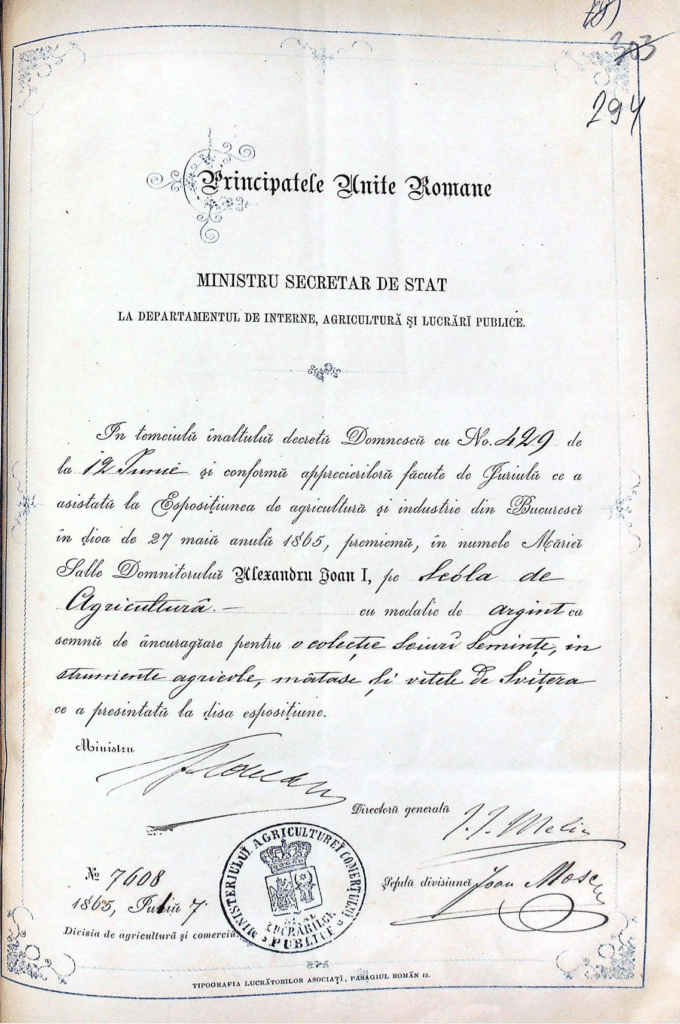 303
294
Principatele Unite Romane
MINISTRU SECRETAR DE STAT
LA DEPARTAMENTUL DE INTERNE, AGRICULTURĂ ȘI LUCRĂRĬ PUBLICE.
In temeiulŭ înaltuluĭ decretŭ Domnescŭ cu No. 429 de
la 12 Iunie și conformŭ apprecierilorŭ făcute de Juriulŭ ce a
asistatŭ la Esposițiunea de agricultură și industrie din Bucurescĭ
în ḑioa de 27 maiŭ anulŭ 1865, premiemŭ, în numele Mărieĭ
Salle Domnitoruluĭ Alexandru Ioan I, pe Scóla de
Agricultură. — cu medalie de argint ca
semnŭ de âncuragiare pentru o colecție soiurĭ seminṭe, in
strumente agricole, mătase și vitele de Svițera
ce a presintatŭ la ḑisa esposițiune.
Ministru
Directorŭ generalŭ
Șefulŭ divisiuneĭ Ioan
No 7608
1865, Iuliŭ 7
Divisia de agricultură și comerciŭ
MINISTERIULUI AGRICULTUREI COMERȚULUI
SI AL
LUCRĂRILOR
PUBLICE
TIPOGRAFIA LUCRĂTORILOR ASOCIAȚĬ, PASAGIUL ROMÂN 12.